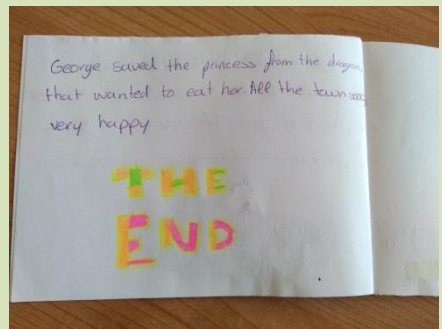 George saved the princess from the dragon,
that wanted to eat her. All the town was
very happy
THE
END